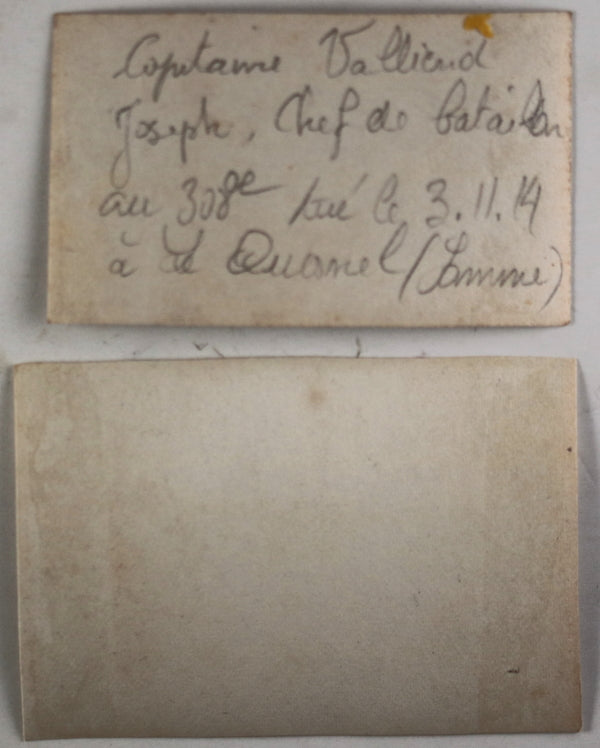 Capitaine Valliend
Joseph, Chef de bataillon
au 308e tué le 3.11.14
à Le Quesnel (Somme)